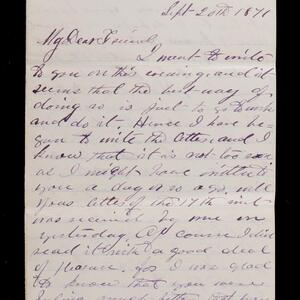 Sept 20th 1871
My Dear Friend,
I want to write
to you on this evening, and it
seems that the best way of
doing so is just to go to work
and do it. Hence I have be-
gun to write the letter, and I
know that it is not too soon
as I might have written to
you a day or so ago. well
your letter of the 17th inst
was received by me on
yesterday. Of course I did
read it with a good deal
of pleasure, for I was glad
to know that you were